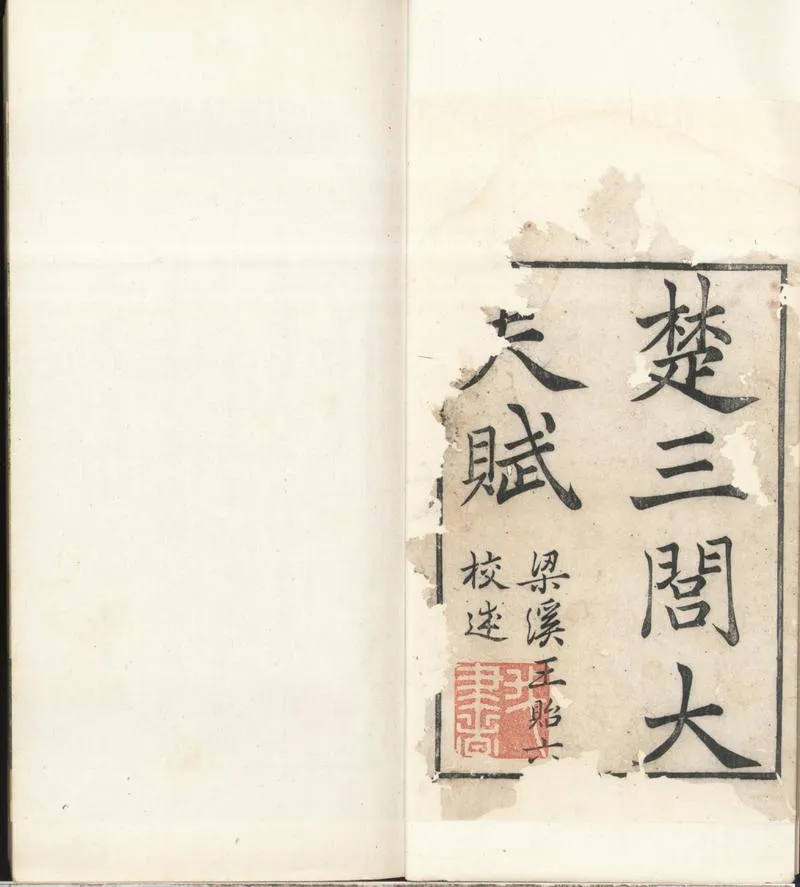 楚三閭大
夫賦
梁溪王貽六
校述